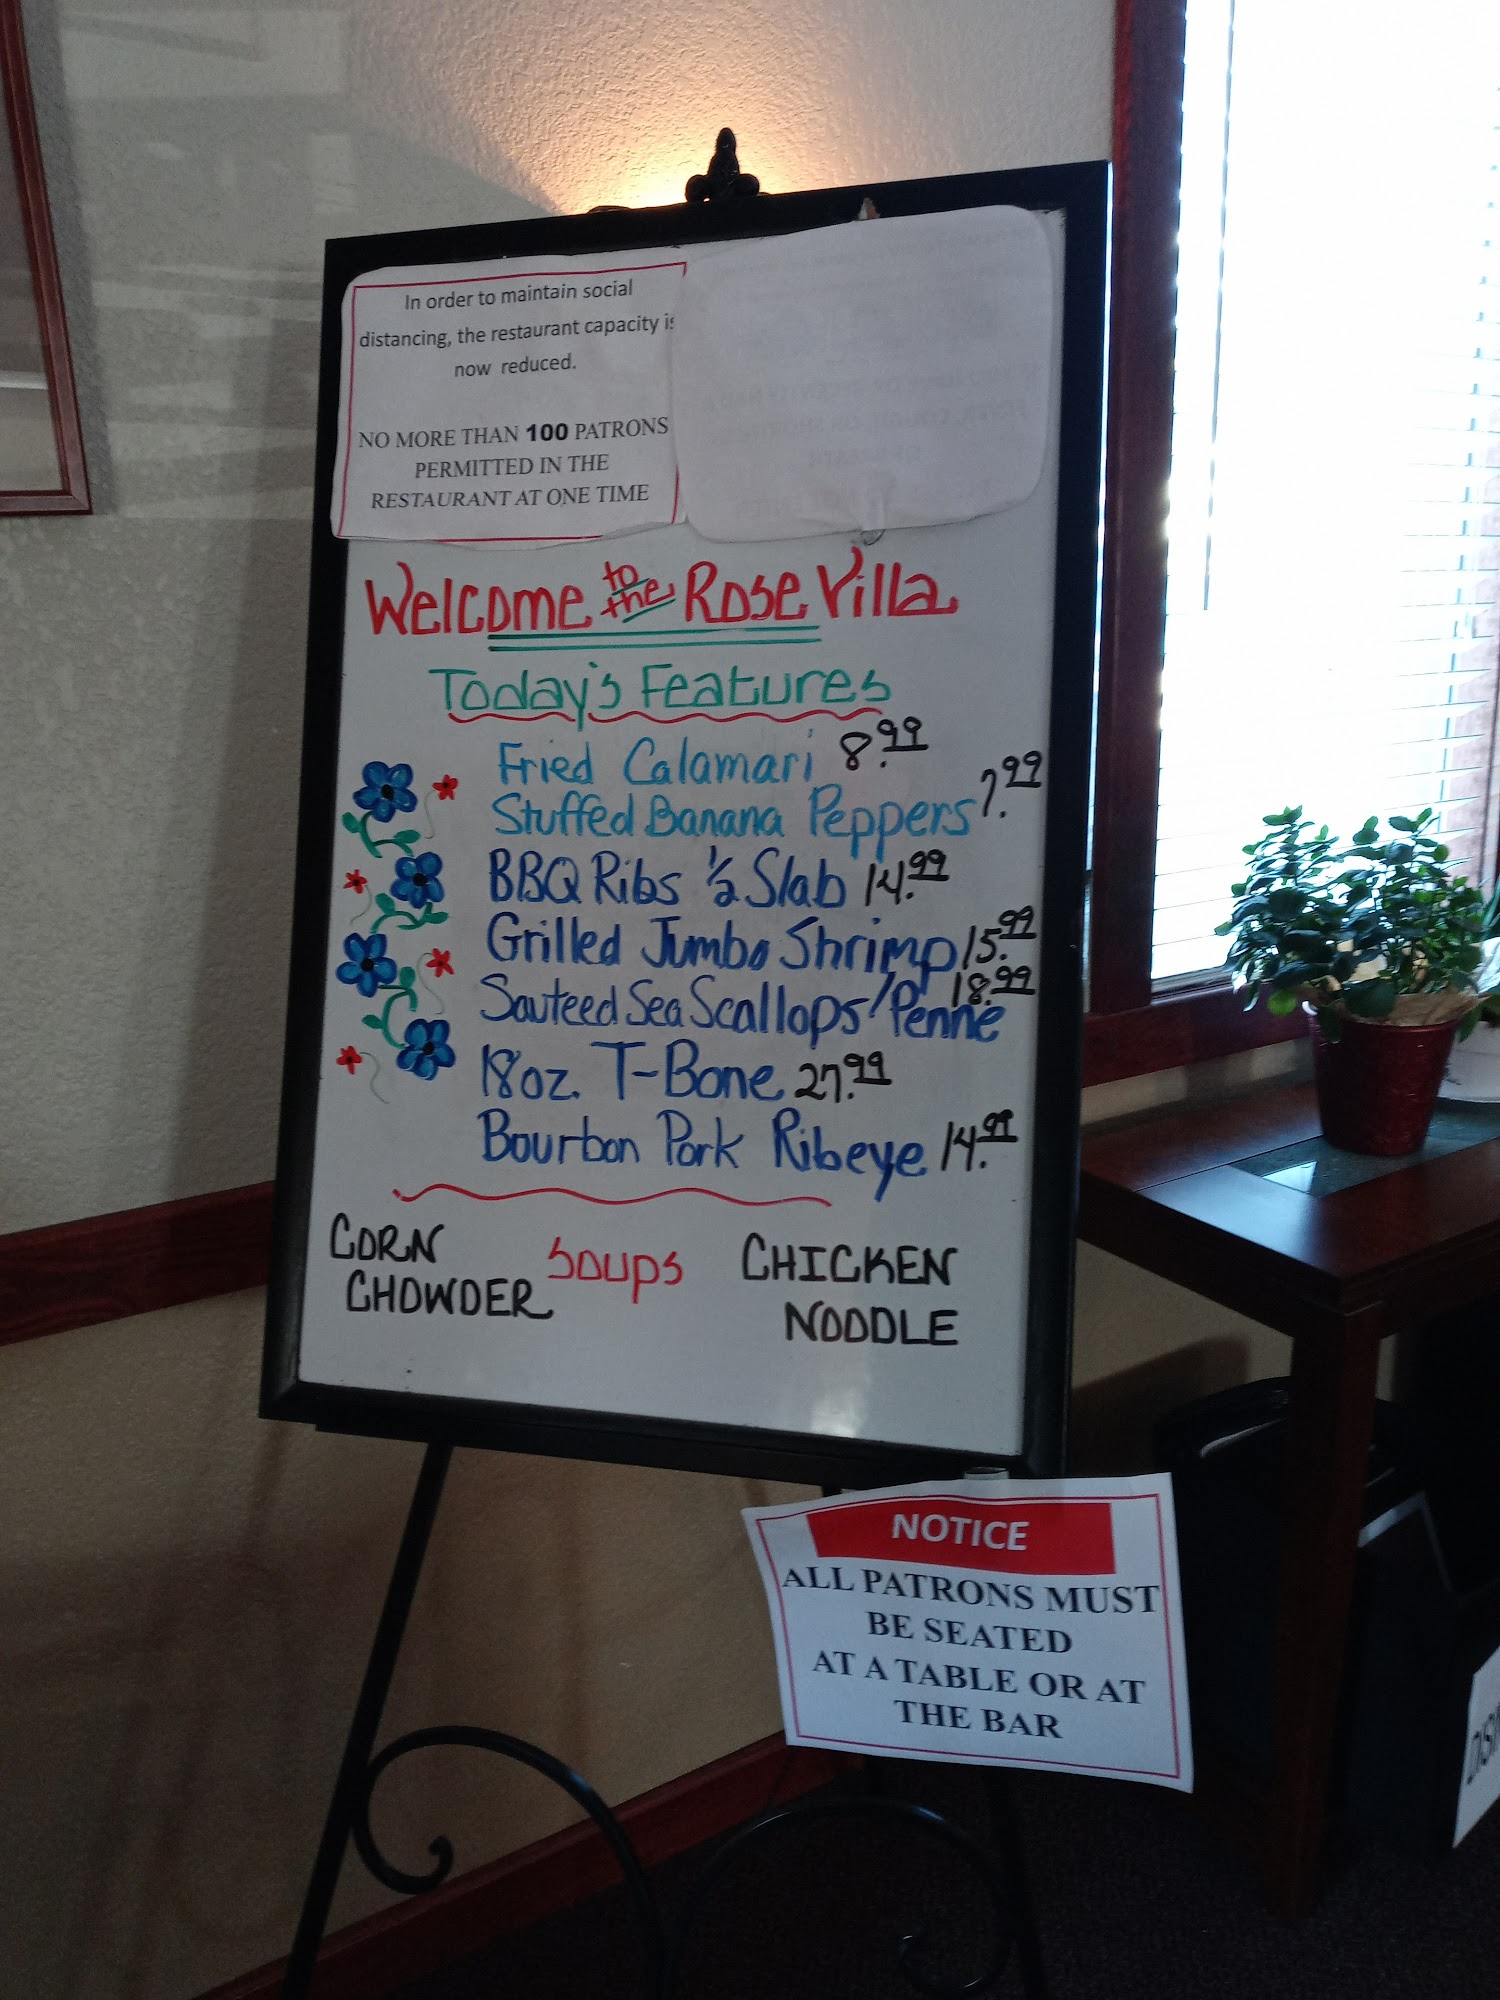 In order to maintain social
distancing, the restaurant capacity is
now reduced.
NO MORE THAN 100 PATRONS
PERMITTED IN THE
RESTAURANT AT ONE TIME
Welcome to the Rose Villa
Today's Features
Fried Calamari 8.99
Stuffed Banana Peppers 7.99
BBQ Ribs 1/2 Slab 14.99
Grilled Jumbo Shrimp 15.99
Sauteed Sea Scallops/Penne 18.99
18oz. T-Bone 27.99
Bourbon Pork Ribeye 14.99
CORN
CHOWDER
Soups
CHICKEN
NOODLE
NOTICE
ALL PATRONS MUST
BE SEATED
AT A TABLE OR AT
THE BAR